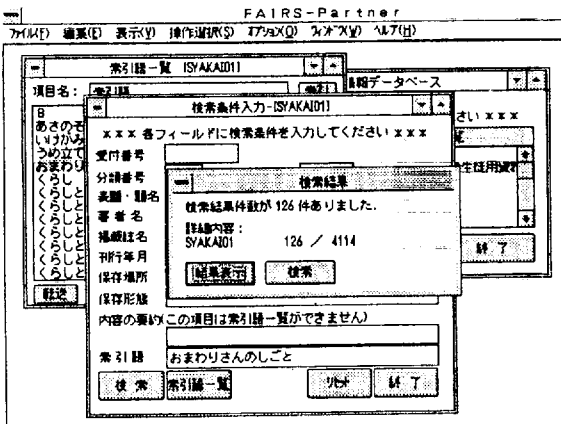 FAIRS-Partner
ファイル(F) 編集(E) 表示(V) 操作選択(S) オプション(O) ウィンドウ(W) ヘルプ(H)
索引語一覧 [SYAKAI01]
項目名: 索引語
B
あさのそ
いけがみ
うめ立て
おまわり
くらし
くらしと
くらしと
くらしと
くらしと
くらしと
くらしと
くらしと
転送
情報データベース
さい xxx
終 了
検索条件入力-[SYAKAI01]
xxx 各フィールドに検索条件を入力してください xxx
受付番号
分類番号
表題・題名
著者名
掲載誌名
刊行年月
保存場所
保存形態
内容の要約(この項目は索引語一覧ができません)
索引語 おまわりさんのしごと
検 索 索引語一覧 リセット 終 了
検索結果
検索結果件数が 126 件ありました.
詳細内容:
SYAKAI01 126 / 4114
結果表示 検索